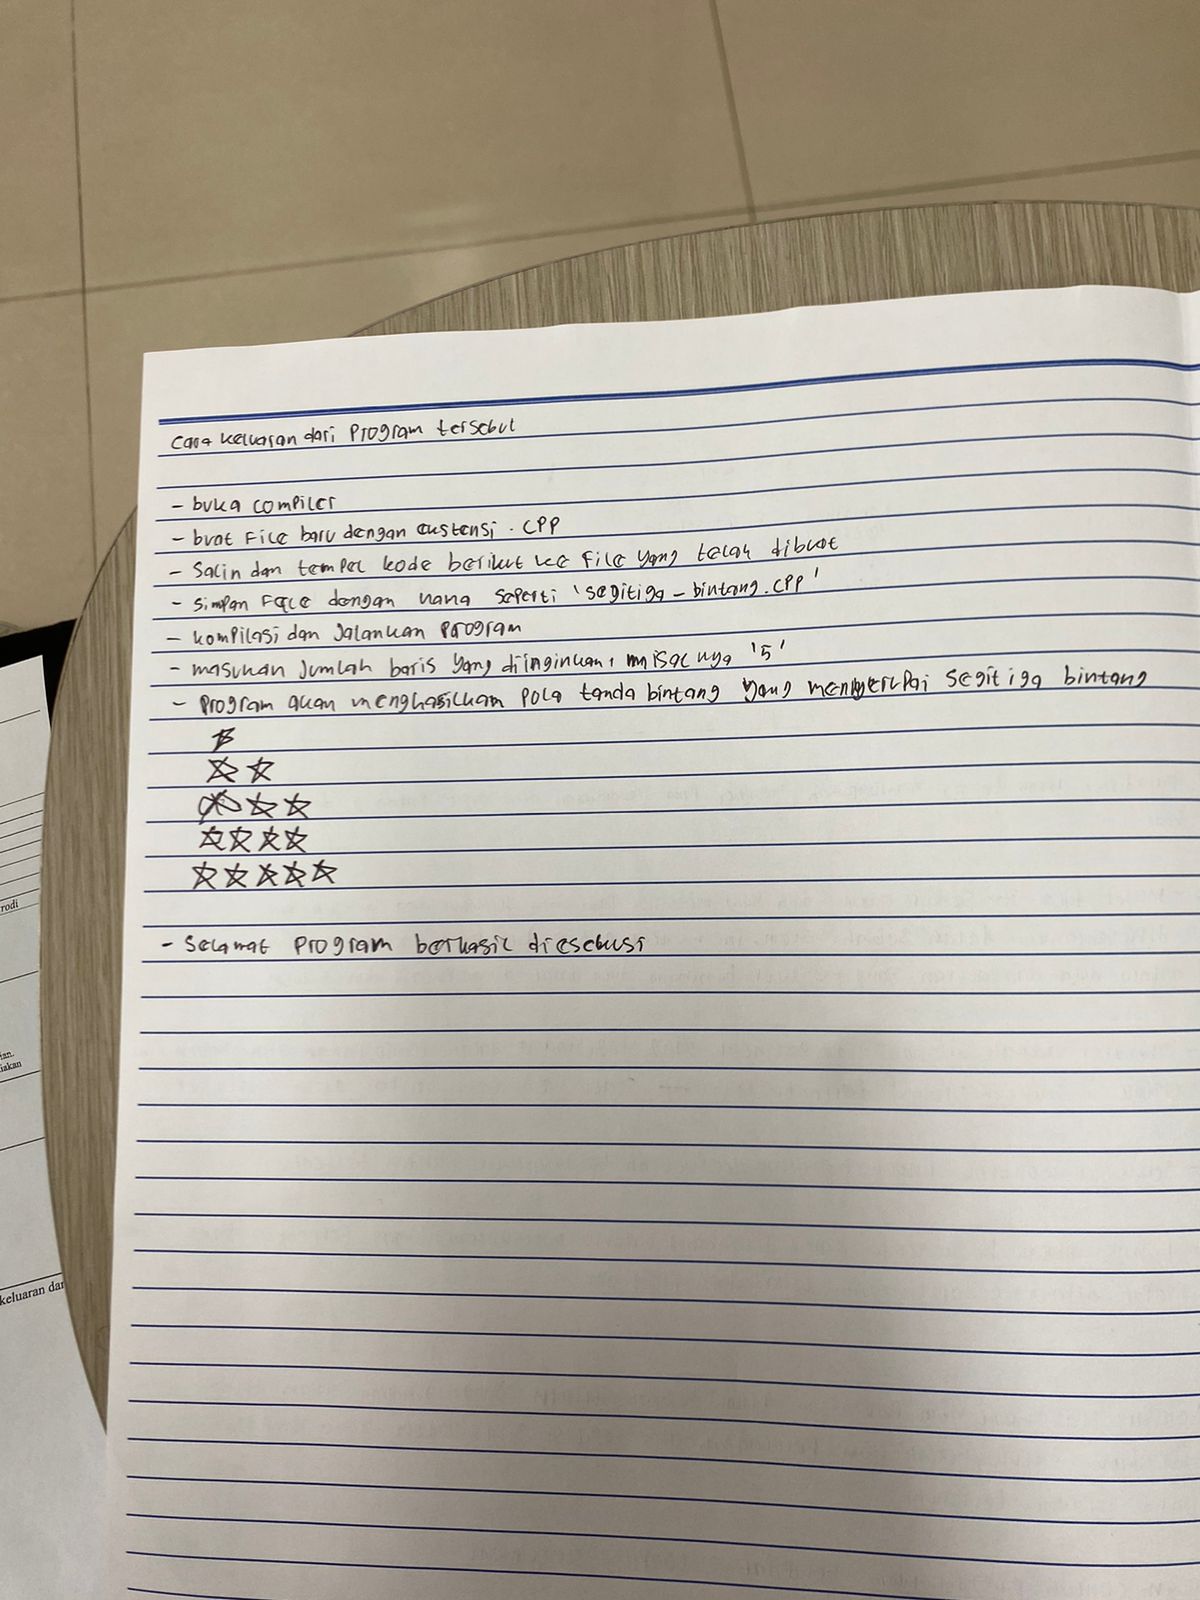 Cara keluaran dari Program tersebut
- buka compiler
- buat File baru dengan eustensi . CPP
- Salin dan tempel kode berikut ke File yang telah dibuat
- simpan File dengan nama seperti 'segitiga - bintang.cpp'
- kompilasi dan Jalankan program
- masukan Jumlah baris yang diinginkan, misalnya '5'
- Program akan menghasilkan pola tanda bintang yang menyerupai segitiga bintang
☆
☆ ☆
☆ ☆ ☆
☆ ☆ ☆ ☆
☆ ☆ ☆ ☆ ☆
- Selamat program berhasil diesekusi
rodi
ian.
iakan
keluaran dar